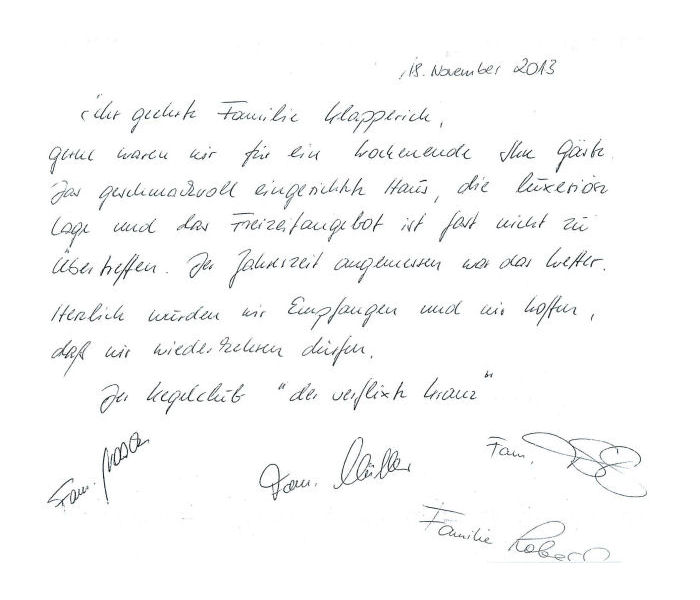 18. November 2013
Sehr geehrte Familie Klapperich,
gerne waren wir für ein Wochenende Ihre Gäste.
Das geschmackvoll eingerichtete Haus, die luxeriöse
Lage und das Freizeitangebot ist fast nicht zu
Übertreffen. Der Jahreszeit angemessen war das Wetter.
Herzlich wurden wir Empfangen und wir hoffen,
daß wir wiederkehren dürfen.
Der Kegelclub "der verflixte Kranz"
Fam.
Fam. Müller
Fam.
Familie